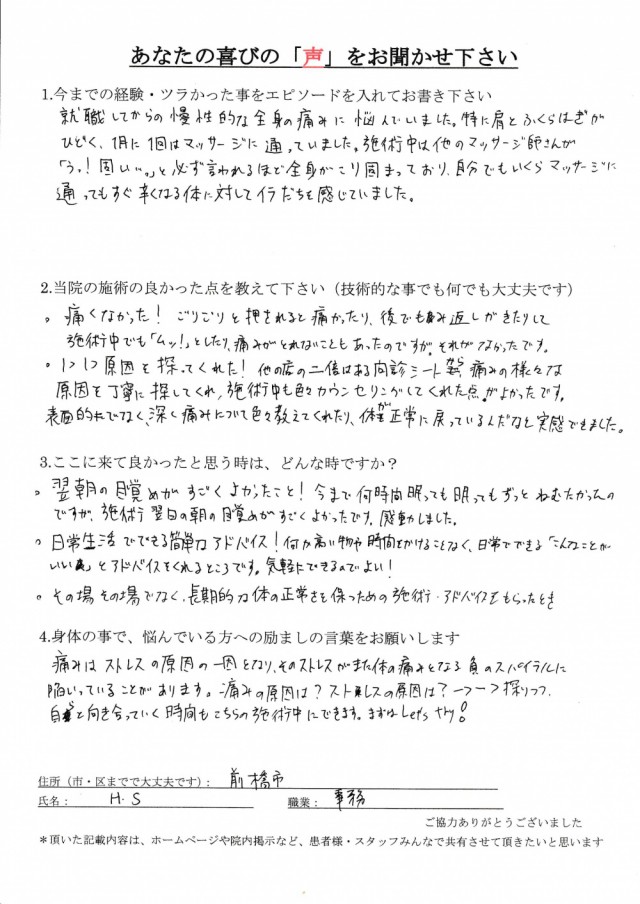 あなたの喜びの「声」をお聞かせ下さい
1.今までの経験・ツラかった事をエピソードを入れてお書き下さい
就職してからの慢性的な全身の痛みに悩んでいました。特に肩とふくらはぎが
ひどく、1月に1回はマッサージに通っていました。施術中は他のマッサージ師さんが
「うっ！固いぃ。」と必ず言われるほど全身がこり固まっており、自分でもいくらマッサージに
通ってもすぐ辛くなる体に対してイラだちを感じていました。
2.当院の施術の良かった点を教えて下さい（技術的な事でも何でも大丈夫です）
。痛くなかった！ごりごりと押されると痛かったり、後でもみ返しがきたりして
施術中でも「ムッ！」としたり、痛みがとれないこともあったのですが、それがなかったです。
。1つ1つ原因を探ってくれた！他の店の二倍はある問診シートから痛みの様々な
原因を丁寧に探してくれ、施術中も色々カウンセリングしてくれた点がよかったです。
表面的でなく、深く痛みについて色々教えてくれたり、体が正常に戻っているんだなと実感できました。
3.ここに来て良かったと思う時は、どんな時ですか？
。翌朝の目覚めがすごくよかったこと！今まで何時間眠っても眠ってもずっとねむたかったの
ですが、施術翌日の朝の目覚めがすごくよかったです。感動しました。
。日常生活でできる簡単なアドバイス！何か高い物や時間をかけることなく、日常でできる「こんなことが
いいよ」とアドバイスをくれるところです。気軽にできるのでよい！
。その場その場でなく、長期的な体の正常さを保つための施術・アドバイスをもらったとき
4.身体の事で、悩んでいる方への励ましの言葉をお願いします
痛みはストレスの原因の一因となり、そのストレスがまた体の痛みとなる負のスパイラルに
陥いっていることがあります。痛みの原因は？ストレスの原因は？一つ一つ探りつつ、
自らと向き合っていく時間もこちらの施術中にできます。まずはLet's try！
住所（市・区までで大丈夫です）： 前橋市
氏名： H.S 職業： 事務
ご協力ありがとうございました
＊頂いた記載内容は、ホームページや院内掲示など、患者様・スタッフみんなで共有させて頂きたいと思います